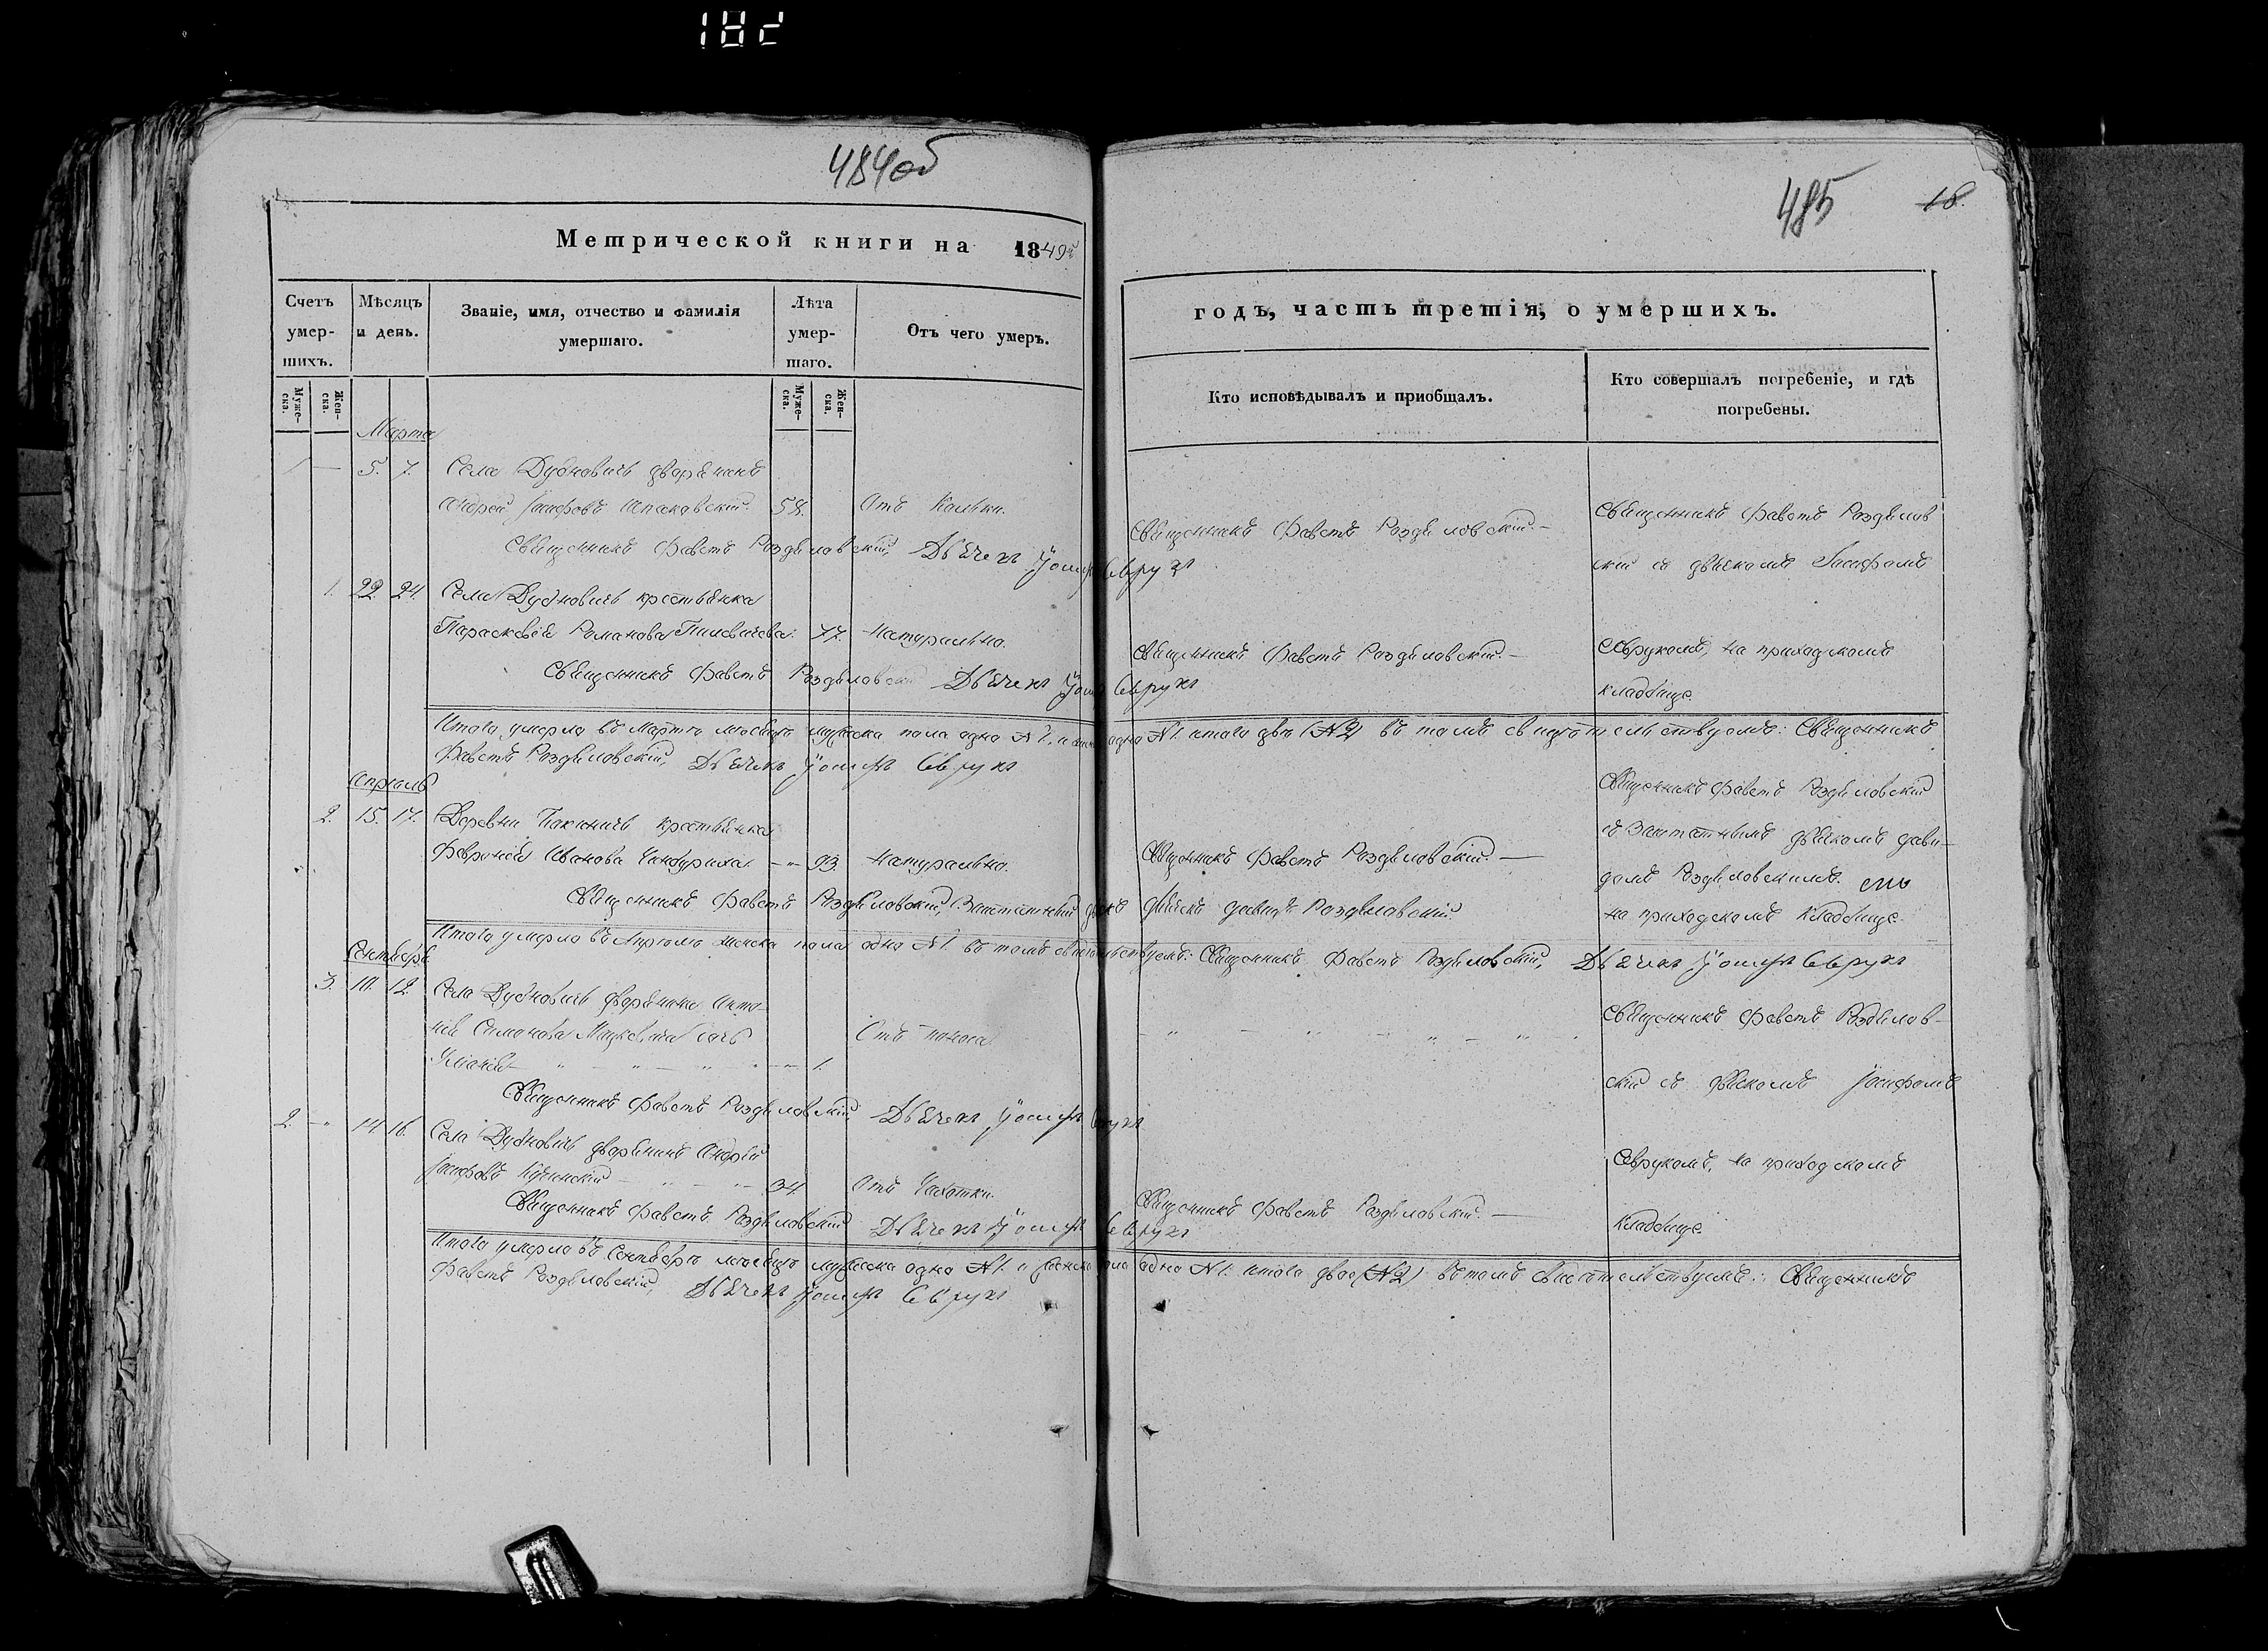 182
484об
Метрической книги на 1849й
Счетъ умер- шихъ.
Мѣсяцъ и день.
Званіе, имя, отчество и фамилія умершаго.
Лѣта умер- шаго.
Отъ чего умеръ.
Муже- ска.
Жен- ска.
Муже- ска.
Жен- ска.
Марта
1 — 5. 7. Села Дубновичь дворянинъ
Андрей Іосифовъ Шпаковскій. 58. Отъ
Священникъ Фавстъ Роздяловскій, Дьячекъ Іосифъ Севрукъ
1. 22. 24. Села Дубновичь крестьянка
Параскевія Романова 77. Натурально.
Священникъ Фавстъ Роздяловскій Дьячекъ Іосифъ Севрукъ
Итого умерло въ Мартѣ мѣсяцѣ мужеска пола одно №1. и женска одно №1. итого двѣ (№2) въ томъ свидѣтельствуемъ: Священникъ
Фавстъ Роздяловскій, Дьячекъ Іосифъ Севрукъ
Апрѣль
2. 15. 17. Деревни крестьянка
Февронія Иванова — " 93. Натурально.
Священникъ Фавстъ Роздяловскій, Заштатный дьячекъ Давидъ Роздяловскій
Итого умерло въ Апрѣлѣ женска пола одно №1. въ томъ свидѣтельствуемъ: Священникъ Фавстъ Роздяловскій, Дьячекъ Іосифъ Севрукъ
Сентябрь
3. 10. 12. Села Дубновичь дворянина Анто-
нія Симонова Мацкевича дочь Отъ поноса
Уліанія — " — " — " — " 1.
Священникъ Фавстъ Роздяловскій, Дьячекъ Іосифъ Севрукъ
2. — " 14 16. Села Дубновичь дворянинъ Андрей
Іосифовъ — " — " — 34. Отъ Чахотки.
Священникъ Фавстъ Роздяловскій Дьячекъ Іосифъ Севрукъ
Итого умерло въ Сентябрѣ мѣсяцѣ мужеска одно №1. и женска пола одно №1. итого двое (№2) въ томъ свидѣтельствуемъ: Священникъ
Фавстъ Роздяловскій, Дьячекъ Іосифъ Севрукъ
485 18.
годъ, часть третія, о умершихъ.
Кто исповѣдывалъ и приобщалъ.
Кто совершалъ погребеніе, и гдѣ погребены.
Священникъ Фавстъ Роздяловскій. —
Священникъ Фавстъ Роздялов
скій съ дьячкомъ Іосифомъ
Священникъ Фавстъ Роздяловскій. —
Севрукомъ, на приходскомъ
кладбище.
Священникъ Фавстъ Роздяловскій
съ Заштатнымъ дьячкомъ Дави-
Священникъ Фавстъ Роздяловскій. —
домъ Роздяловскимъ.
на приходскомъ кладбище.
Священникъ Фавстъ Роздялов-
скій съ дьячкомъ Іосифомъ
Севрукомъ, на приходскомъ
Священникъ Фавстъ Роздяловскій. —
кладбище